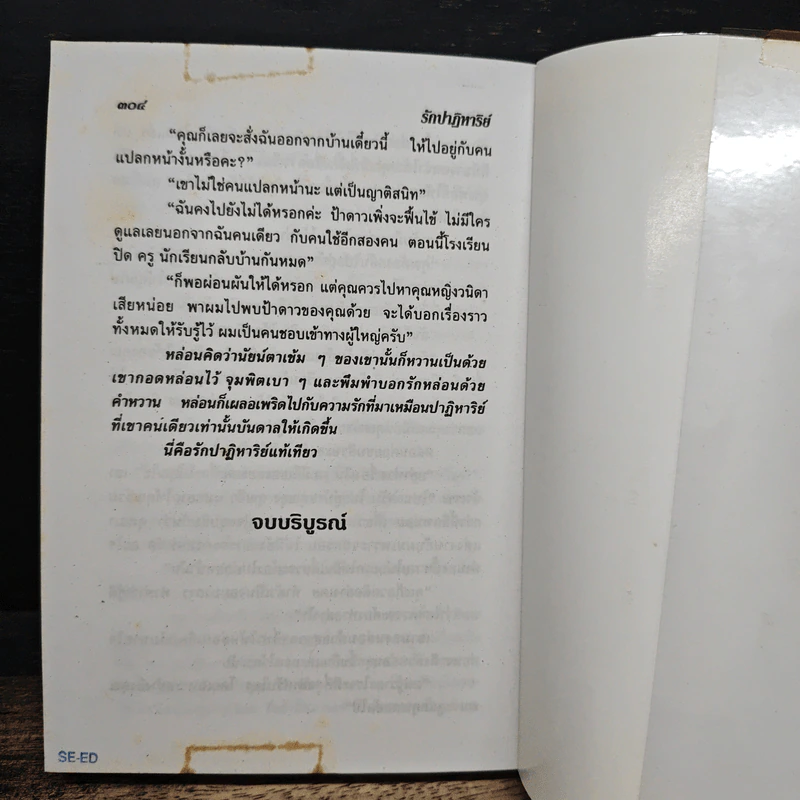 ๓๐๔ รักปาฏิหาริย์
“คุณก็เลยจะสั่งฉันออกจากบ้านเดี๋ยวนี้ ให้ไปอยู่กับคน
แปลกหน้างั้นหรือคะ?”
“เขาไม่ใช่คนแปลกหน้านะ แต่เป็นญาติสนิท”
“ฉันคงไปยังไม่ได้หรอกค่ะ ป้าดาวเพิ่งจะฟื้นไข้ ไม่มีใคร
ดูแลเลยนอกจากฉันคนเดียว กับคนใช้อีกสองคน ตอนนี้โรงเรียน
ปิด ครู นักเรียนกลับบ้านกันหมด”
“ก็พอผ่อนผันให้ได้หรอก แต่คุณควรไปหาคุณหญิงวนิดา
เสียหน่อย พาผมไปพบป้าดาวของคุณด้วย จะได้บอกเรื่องราว
ทั้งหมดให้รับรู้ไว้ ผมเป็นคนชอบเข้าทางผู้ใหญ่ครับ”
หล่อนคิดว่านัยน์ตาเข้ม ๆ ของเขานั้นก็หวานเป็นด้วย
เขากอดหล่อนไว้ จุมพิตเบา ๆ และพึมพำบอกรักหล่อนด้วย
คำหวาน หล่อนก็เผลอเพริดไปกับความรักที่มาเหมือนปาฏิหาริย์
ที่เขาคนเดียวเท่านั้นบันดาลให้เกิดขึ้น
นี่คือรักปาฏิหาริย์แท้เทียว
จบบริบูรณ์
SE-ED